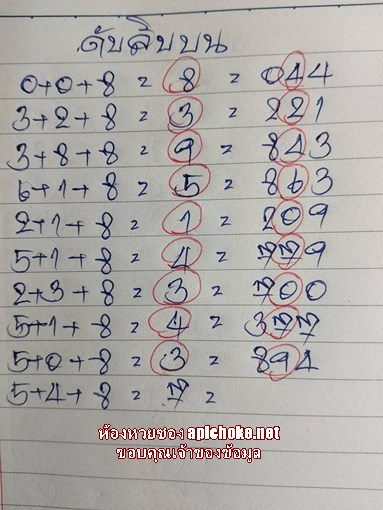 ดับสิบบน
0+0+8 = 8 = 044
3+2+8 = 3 = 221
3+8+8 = 9 = 843
6+1+8 = 5 = 863
2+1+8 = 1 = 209
5+1+8 = 4 = 779
2+3+8 = 3 = 700
5+1+8 = 4 = 377
5+0+8 = 3 = 894
5+4+8 = 7 =
ห้องหวยซอง apichoke.net
ขอบคุณเจ้าของข้อมูล